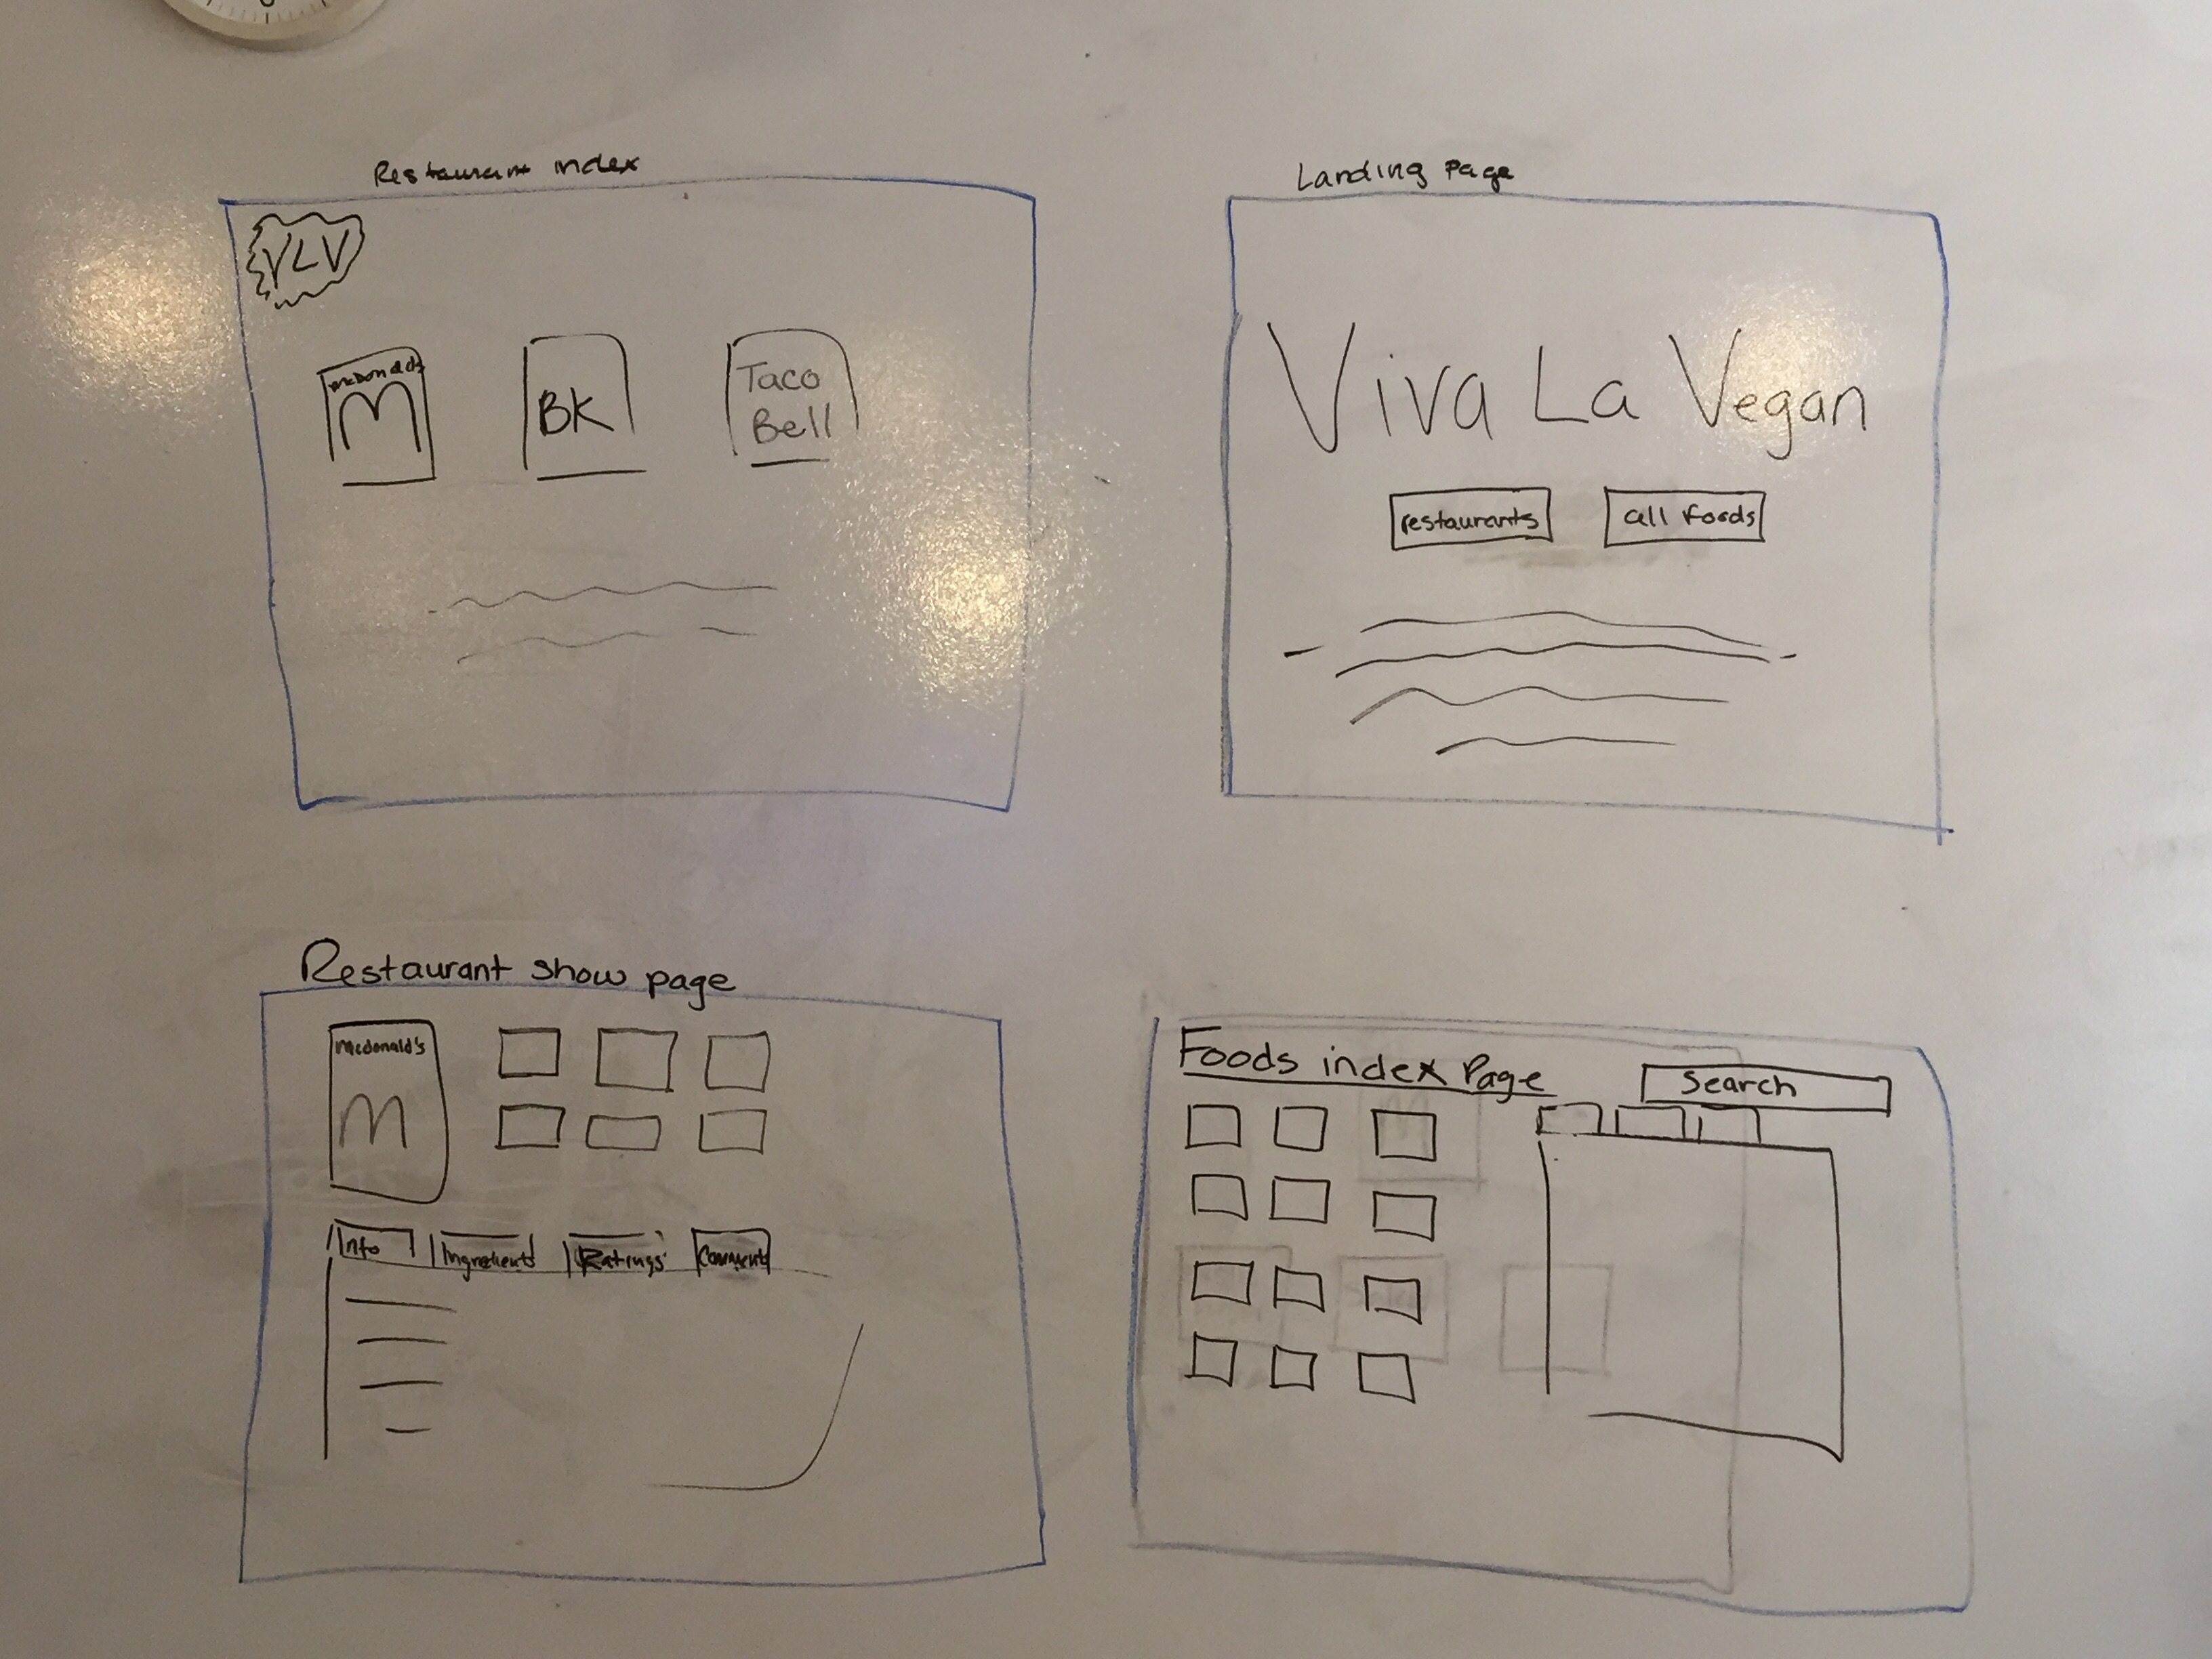 Restaurant index
VLV
McDonald's
M
BK
Taco
Bell
Landing Page
Viva La Vegan
restaurants
all foods
Restaurant show page
Mcdonald's
M
Info
Ingredients
Ratings
Comments
Foods index Page
Search